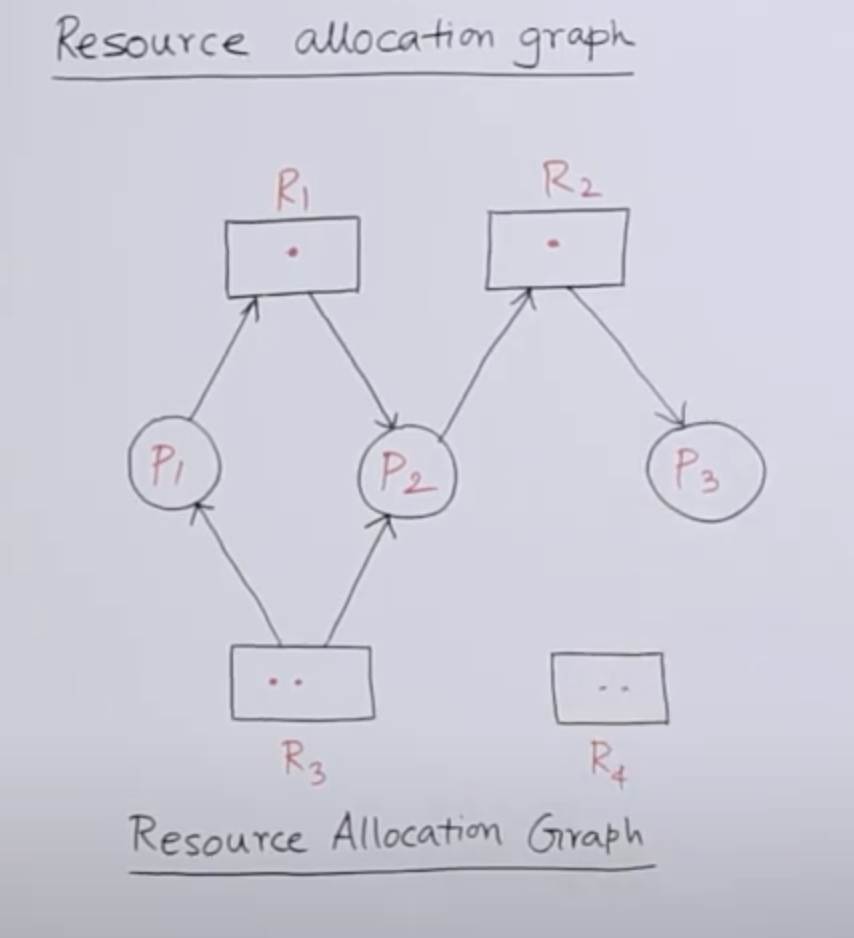 Resource allocation graph
R1
R2
P1
P2
P3
R3
R4
Resource Allocation Graph